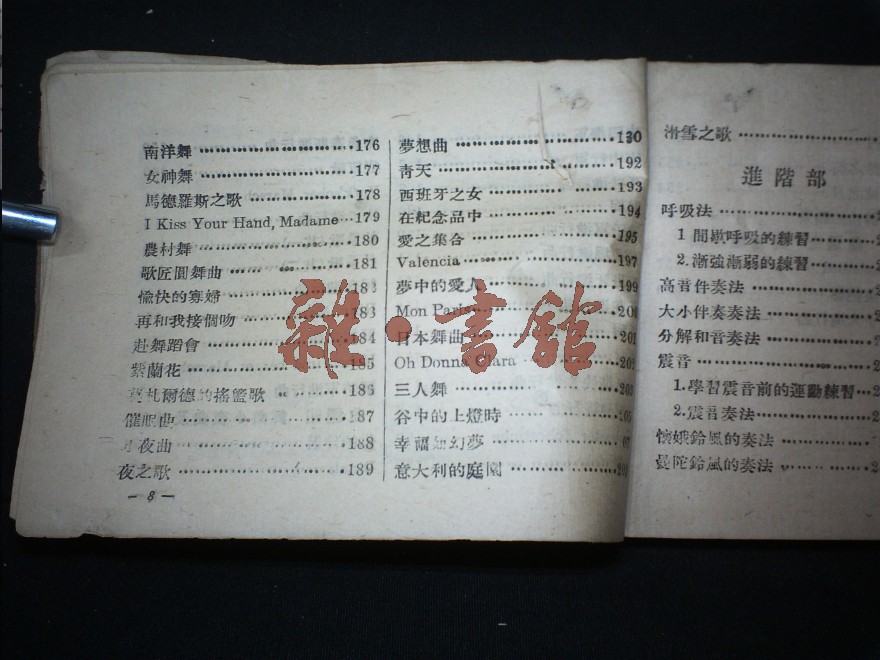 南洋舞 176
女神舞 177
馬德羅斯之歌 178
I Kiss Your Hand, Madame 179
農村舞 180
歌匠圓舞曲 181
愉快的寡婦 182
再和我接個吻 183
赴舞蹈會 184
紫蘭花 185
莫札爾德的搖籃歌 186
催眠曲 187
小夜曲 188
夜之歌 189
— 8 —
夢想曲 190
靑天 192
西班牙之女 193
在紀念品中 194
愛之集合 195
Valencia 197
夢中的愛人 199
Mon Paris 200
日本舞曲 201
Oh Donna Clara 202
三人舞 203
谷中的上燈時 205
幸福如幻夢
意大利的庭園
滑雪之歌
進階部
呼吸法
1 間歇呼吸的練習
2.漸強漸弱的練習
高音伴奏法
大小伴奏奏法
分解和音奏法
震音
1.學習震音前的運動練習
2.震音奏法
懷娥鈴風的奏法
曼陀鈴風的奏法
雜·書館